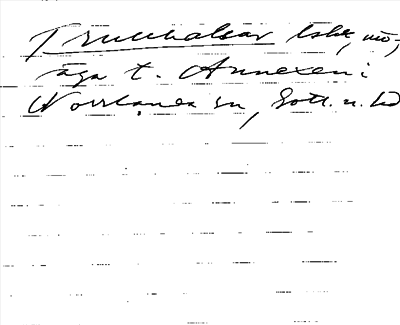 Trullhalsar lsht, mö,
äga t. Annexen i
Norrlanda sn, Gotl. n. hd